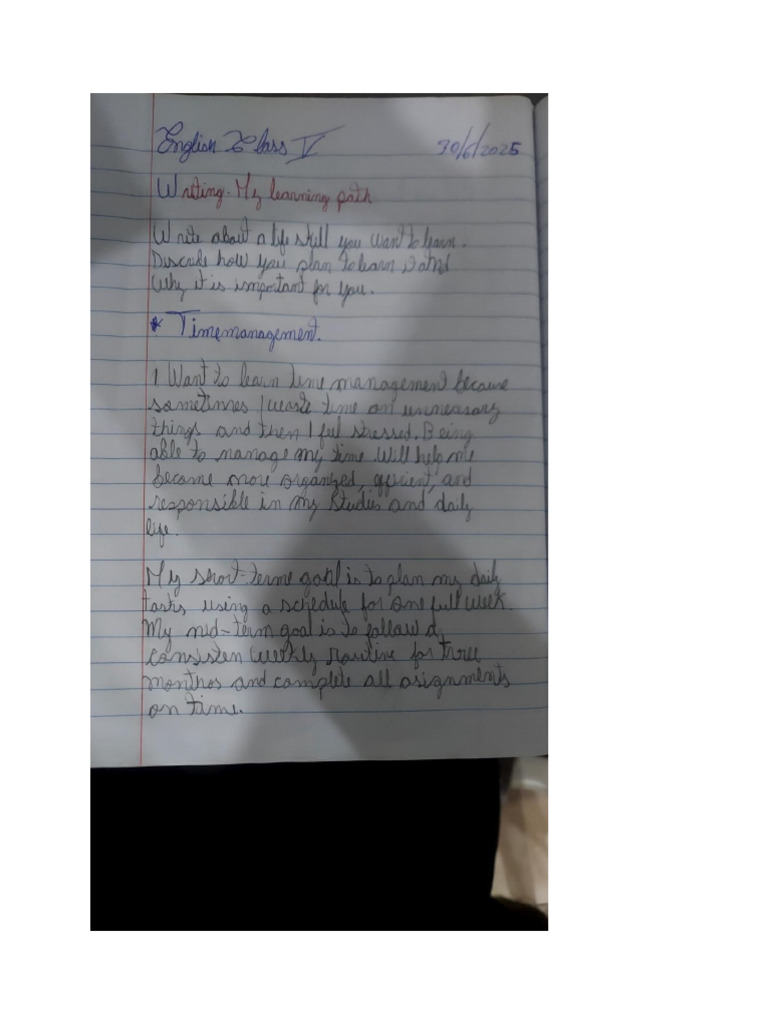 English Class V 30/6/2025
Writing. My learning path
Write about a life skill you want to learn.
Discribe how you plan to learn it and
why it is important for you.
* Timemanagement.
I Want to learn time management because
sometimes I waste time on unnecesary
things and then I feel stressed. Being
able to manage my time will help me
become more organized, efficient, and
responsible in my studies and daily
life.
My short-terme goal is to plan my daily
tasks using a schedule for one full week.
My mid-term goal is to follow a
consisten weekly routine for three
months and complete all asignments
on time.